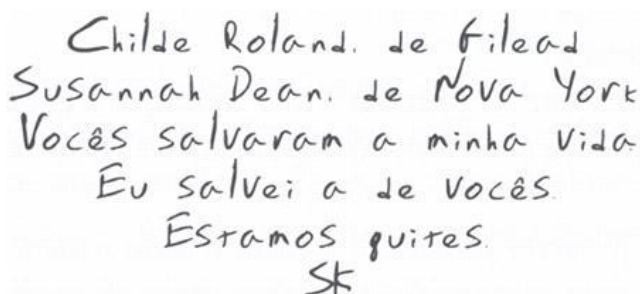 Childe Roland. de Gilead
Susannah Dean. de Nova York
Vocês salvaram a minha vida.
Eu salvei a de vocês.
Estamos quites.
SK